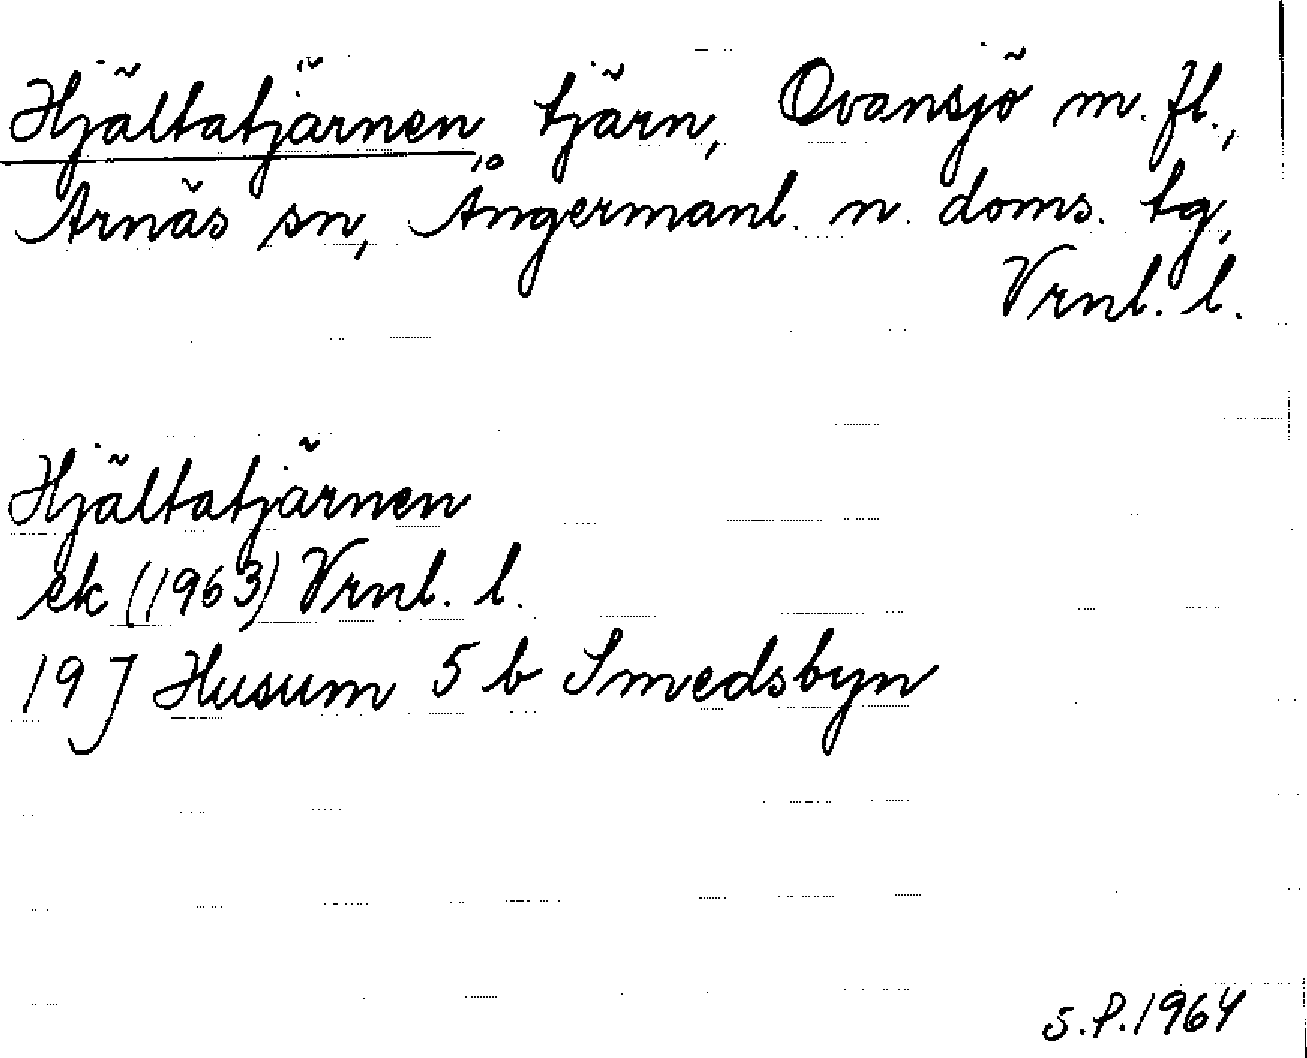 Hjältatjärnen, tjärn, Ovansjö m. fl.,
Arnäs sn, Ångermanl. n. doms. tg,
Vrnl. l.
Hjältatjärnen
ek (1963) Vrnl. l.
19 J Husum 5 b Smedsbyn
S.P. 1964